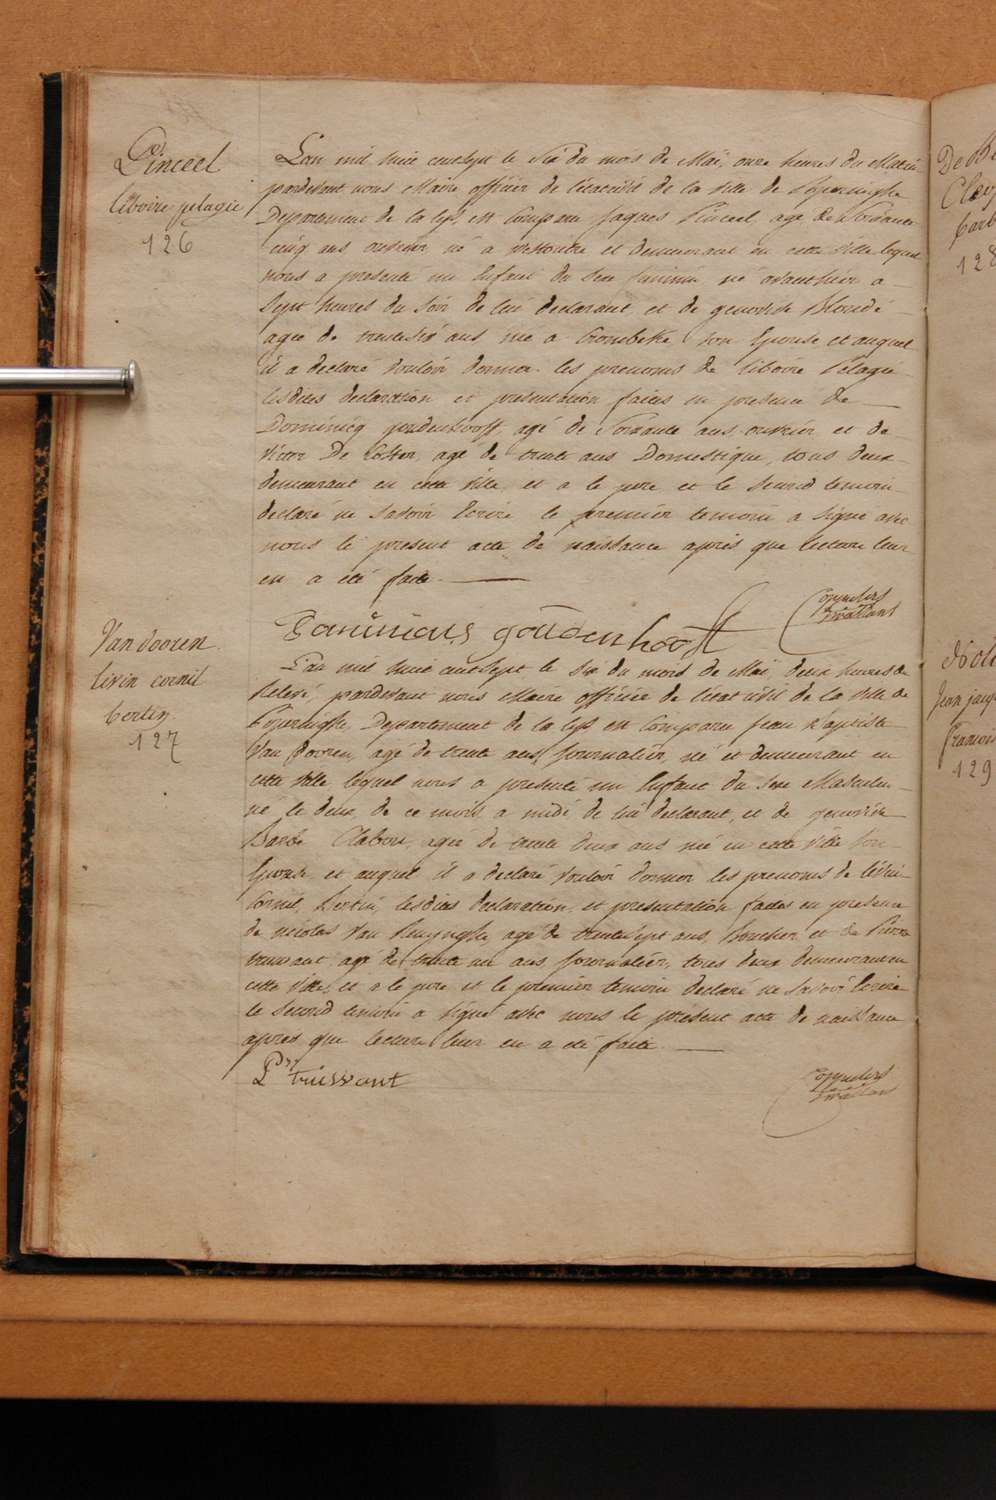 Pinceel
liboire pelagie
126
L'an mil huit cent sept le six du mois de Maï, onze heures du Matin
pardevant nous Maire officier de l'état civil de la ville de Poperinghe
Departement de la Lys est comparu Jaques Pinceel, agé de soixante
cinq ans ouvrier né a Westoutre et demeurant en cette ville lequel
nous a presenté un Enfant du sexe feminin né avanthier a
sept heures du soir de lui declarant et de genoveve Blondé
agée de trente six ans née a Crombeke son Epouse et auquel
il a declaré vouloir donner les prenoms de liboire Pelagie
lesdites declaration et presentation faites en presence de
Dominicq goudenhooft agé de soixante ans ouvrier et de
victor De Coster agé de trente ans Domestique, tous deux
demeurant en cette ville et a le pere et le second temoin
declaré ne savoir Ecrire le premier temoin a signé avec
nous le present acte de naissance après que lecture leur
en a été faite.
Dominicus goudenhooft
Van dooren
livin cornil
bertin
127
L'an mil huit cent sept le six du mois de Maï, deux heures de
Relevé, pardevant nous Maire officier de l'etat civil de la ville de
Poperinghe, Departement de la Lys est comparu Jean Baptiste
Van Dooren, agé de trente ans journalier, né et demeurant en
cette ville, lequel nous a presenté un Enfant du sexe Masculin
né le deux de ce mois a midi de lui declarant, et de genoveve
Barbe agée de trente deux ans née en cette ville son
Epouse, et auquel il a declaré vouloir donner les prenoms de livin
Cornil, Bertin, lesdites declaration et presentation faites en presence
de nicolas Van agé de trente sept ans, Boucher et de Pierre
truwant agé de trente un ans journalier, tous deux demeurant en
cette ville, et a le pere et le premier temoin declaré ne savoir Ecrire
le second temoin a signé avec nous le present acte de naissance
après que lecture leur en a été faite.
P truwant
De B
Cley
barb
128
Jean jacq
francois
129